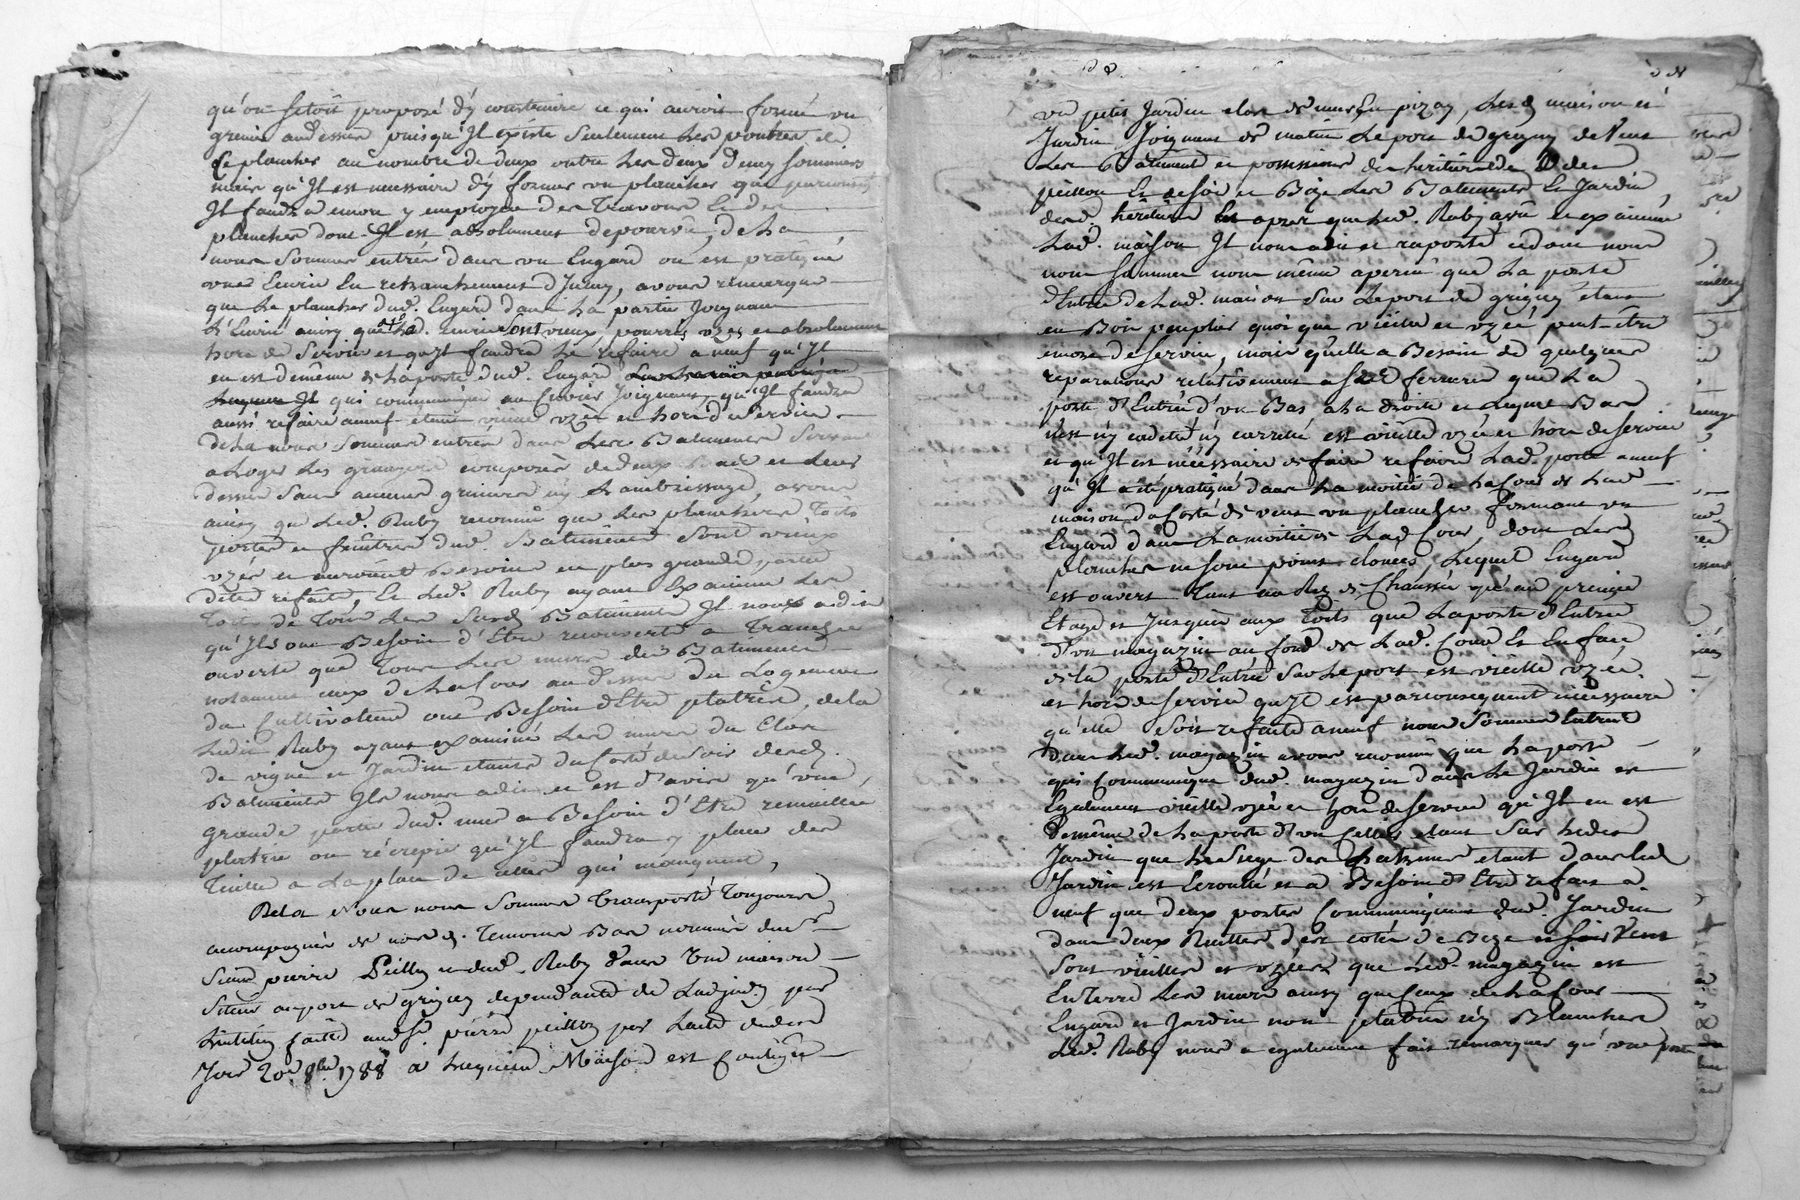 qu'on setoit proposé d'y construire ce qui auroit formé un
grenier audessus puisqu'Il existe seulement Les poutres de
Ce plancher au nombre de deux outre Les deux demy sommiers
mais qu'Il est necessaire d'y former un plancher que
Il faudra encore y employer des Travons Et des
planches dont Il est absolument depourvû, de La
nous sommes entrés dans un Engard où est pratiqué
une Ecurie En retranchement d'Jceluy, avons remarqué
que Le plancher dud. Engard dans La partie Joignant
L'Ecurie ainsy que Lad. Ecurie sont vieux, pourris uzés et absolument
hors de service et qu'Il faudra Le refaire a neuf qu'Il
en est demême de La porte dud. Engard
qui communique au Cuvier Joignant, qu'Il faudra
aussi refaire aneuf etant vieille uzée et hors de service.
de La nous sommes entrés dans Les Batiments servant
a Loger Les grangers composés de deux Bas et Leurs
dessus sans aucuns greniers ny Lambrissage, avons
ainsy que Led. Ruby reconnu que Les planchers Toits
portes et fenêtres dud. Batiments sont vieux
uzés et auroient Besoins en plus grande partie
d'être refaits, Et Led. Ruby ayant Examiné Les
Toits de Tous Les susd. Batiments Il nous a dit
qu'Ils ont Besoin d'Etre recouverts a Tranchée
ouverte que Tous Les murs des Batiments
notamment ceux de La Cour audessus du Logement
du Cultivateur ont Besoin d'Etre platrés, de la
Ledit Ruby ayant examiné Les murs du Clos
de vigne et Jardin etants du Coté du soir desd.
Batiments Il nous a dit et est d'avis qu'une
grande partie dud. mur a Besoin d'Etre remaillée
platrie ou récrepie qu'Il faudra y placer des
Tuilles a La place de celles qui manquent,
De La Nous nous sommes Transporté Toujours
accompagnés de nosd. Temoins Bas nommés dud. Sr
Sieur pierre Peillon et dud. Ruby dans Une maison
Située au port de grigny dependante de
faite aud. Sr. pierre peillon par Lacte dudit
Jour 20e 8bre 1788 a Laquelle Maison est Contigu
un petit Jardin clos de murs En pizay, Lesd. maison et
Jardin Joignent de matin Le port de grigny de Vent
Les Batiments et possessions des heritiers de
peillon Et de soir et Bize Les Batiments Et Jardin
desd. heritiers Et apres que Led. Ruby a vû et examiné
Lad. maison Il nous a dit et raporté et dont nous
nous sommes nous même aperçu que La porte
d'Entrée de Lad. maison sur Le port de grigny etant
en Bois peuplier quoi que vieille et uzée peut-être
encore de service, mais quelle a Besoin de quelques
reparations relativement a ses ferrures que La
porte d'Entrée d'un Bas a La droite et Lequel Bas
n'est ny cadeté ny carrelé est vieille uzée et hors de service
et qu'Il est nécessaire de faire refaire Lad. porte a neuf
qu'Il a été pratiqué dans La moitié de La Cour de Lad.
maison du Coté de vent un plancher formant un
Engard dans La moitié de Lad. Cour dont Les
planches ne sont point cloués, Lequel Engard
est ouvert Tant au Rez de Chaussée qu'au premier
Etage et Jusques aux Toits que La porte d'Entrée
d'un magazin au fond de Lad. Cour Et En face
de la porte d'Entrée sur Le port est vieille uzée.
et hors de service qu'Il est par consequent necessaire
qu'elle soit refaite a neuf nous sommes Entrés
dans Led. magazin avons reconnu que La porte
qui Communique dud. magazin dans Le Jardin est
Egalement vieille uzée et hors de service qu'Il en est
demême de La porte d'un Cellier etant sur Ledit
Jardin que Le siege des Latrines etant dans Led.
Jardin est Ecroulé et a Besoin d'Etre refait a
neuf que deux portes Communiquant dud. Jardin
dans deux Ruelles des cotés de Bize et Vent
sont vieilles et uzées que Led. magazin est
En Terre Les murs ainsy que Ceux de La Cour
Engard et Jardin non platrés ny Blanchis
Led. Ruby nous a egalement fait remarquer qu'une porte